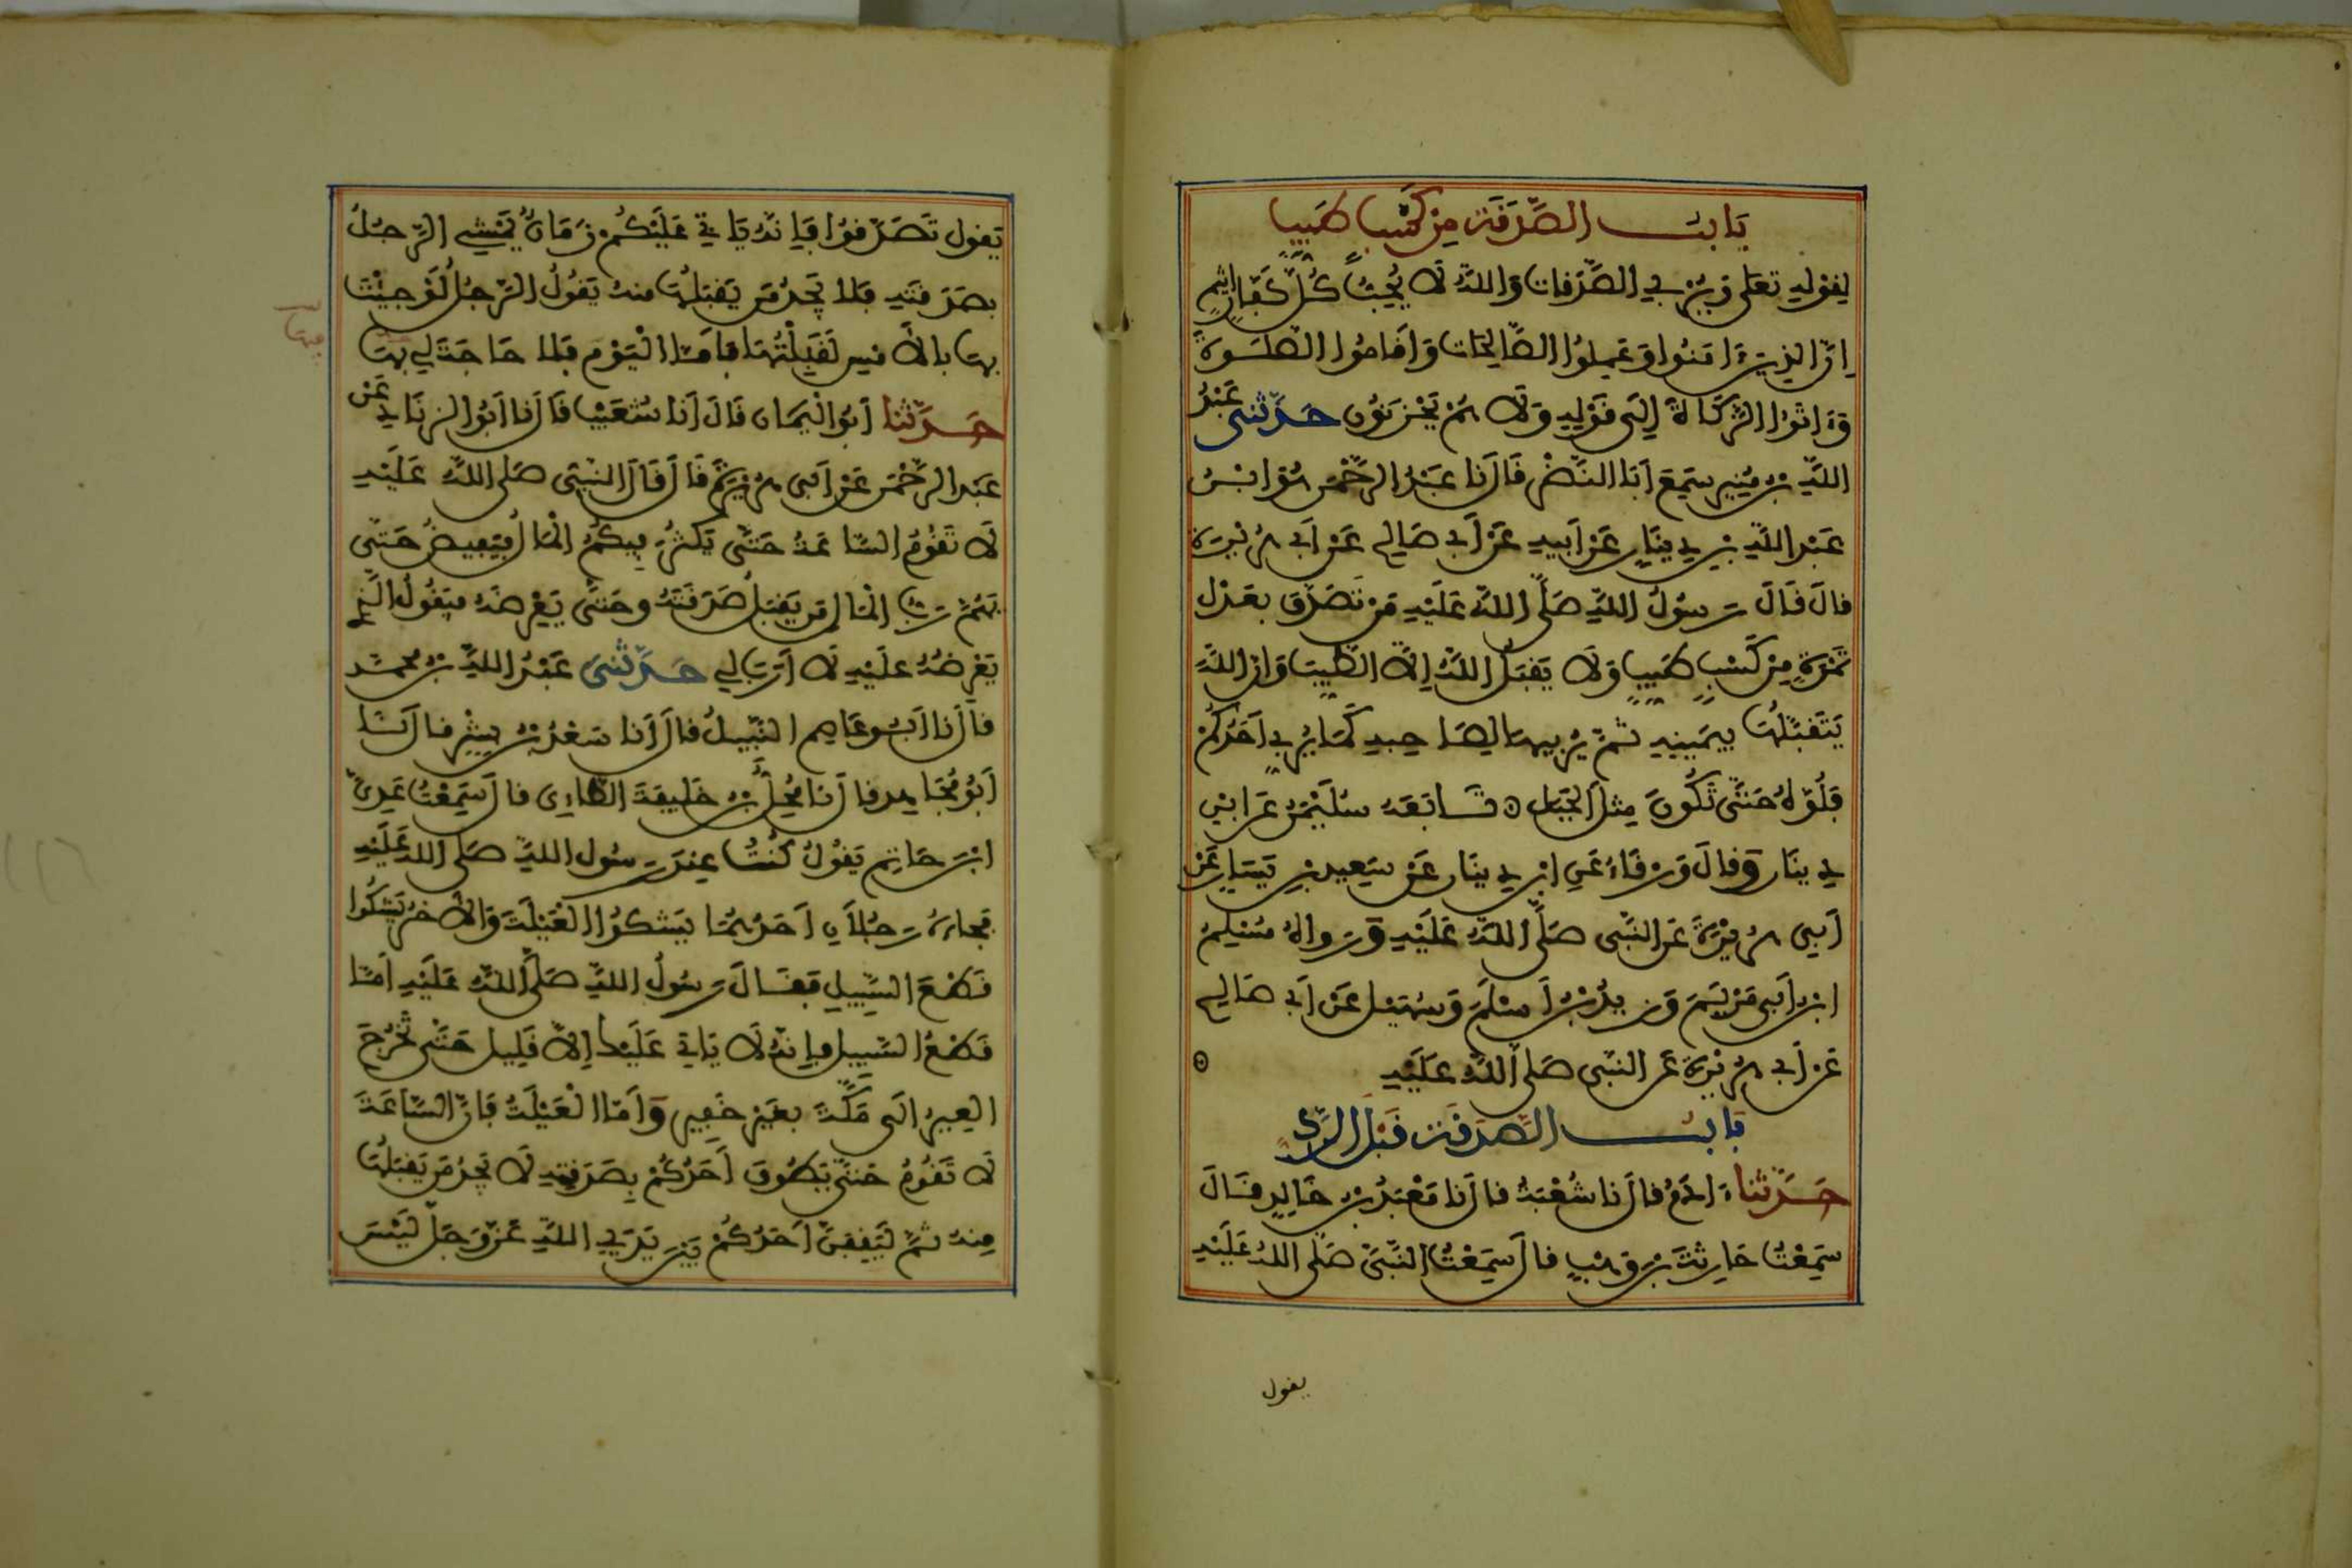 بَابُ الصَّدَقَةِ مِنْ كَسْبٍ طَيِّبٍ
لِقَوْلِهِ تعَلى وَيُرْبِي الصَّدَقَاتِ وَاللَّهُ لَا يُحِبُّ كُلَّ كَفَّارٍ اَثِيمٍ
اِنَّ الذِينَ ءَامَنُوا وَعَمِلُوا الصَّالِحَاتِ وَأَقَامُوا الصَّلَوةَ
وَءَاتَوُا الزَّكَاةَ إِلَى قَوْلِهِ وَلَا هُمْ يَحْزَنُونَ حَدَّثَنِي عَبْدُ
اللَّهِ بْنُ مُنِيرٍ سَمِعَ أَبَا النَّضْرِ قَالَ نَا عَبْدُ الرَّحْمَن هُوَ ابْنُ
عَبْدِ اللَّهِ بْنِ دِينَارٍ عَنْ أَبِيهِ عَنْ أَبِي صَالِحٍ عَنْ أَبِي هُرَيْرَة
قالَ قَالَ رَسُولُ اللَّهِ صَلَّى اللَّهُ عَلَيْهِ مَنْ تَصَدَّقَ بِعَدْلِ
تَمْرَةٍ مِنْ كَسْبٍ طَيِّبٍ وَلَا يَقْبَلُ اللَّهُ إِلَّا الطَّيِّبَ وَإِنَّ اللَّهَ
يَتَقَبَّلُهَا بِيَمِينِهِ ثُمَّ يُرَبِّيهَا لِصَاحِبِهِ كَمَا يُرَبِّي أَحَدُكُمْ
فَلُوَّهُ حَتَّى تَكُونَ مِثْلَ الْجَبَلِ ۞ تَابَعَهُ سُلَيْمَنُ عَنِ ابْنِ
دِينَارٍ وَقالَ وَرْقَاءُ عَنِ ابْنِ دِينَارٍ عَنْ سَعِيدِ بْنِ يَسَارٍ عَنْ
أَبِي هُرَيْرَةَ عَنِ النَّبِي صَلَّى اللَّهُ عَلَيْهِ وَرَوَاهُ مُسْلِمُ
ابْنُ أَبِي مَرْيَمَ وَزَيْدُ بْنُ أَسْلَمَ وَسُهَيْل عَنْ أَبِي صَالِحٍ
عَنْ أَبِي هُرَيْرَةَ عَنِ النَّبِي صَلى اللَّهُ عَلَيْهِ ۞
بَابُ الصَّدَقَةِ قَبْلَ الرَّدِّ
حَدَّثَنا ءَادَمُ قالَ نَا شُعْبَةُ قالَ نَا مَعْبَدُ بْنُ خَالِدٍ قَالَ
سَمِعْتُ حَارِثَةَ بْنَ وَهْبٍ قالَ سَمِعْتُ النَّبِيَّ صَلى اللهُ عَلَيْهِ
يقول
يَقول تَصَدَّقُوا فَإِنَّهُ يَاتِي عَلَيْكُمْ زَمَانٌ يَمْشِي الرَّجُلُ
بِصَدَقَتِهِ فَلا يَجِدُ مَن يَقْبَلُهَا مِنه يَقُولُ الرَّجُلُ لَوْ جِيْتَ
بِهَا بِالْأَمْسِ لَقَبِلْتُهَا فأَمَّا الْيَوْمَ فَلا حَاجَةَ لِي بِهَا
حَدَّثَنا أَبُو الْيَمَانِ قَالَ أَنا شُعَيْب قَالَ نا أَبُو الزِّنَادِ عَنْ
عَبْدِ الرَّحْمَن عَنْ أَبِي هُرَيْرَةَ قَالَ قَالَ النَّبِي صَلى اللَّهُ عَلَيْهِ
لَا تَقُومُ السَّاعَةُ حَتَّى يَكْثُرَ فِيكُمُ الْمَالُ فَيَفِيضُ حَتَّى
يُهِمَّ رَبَّ الْمَالِ مَن يَقْبَلُ صَدَقَتَهُ وحَتَّى يَعْرِضَهُ فَيَقُولُ الَّذِي
يَعْرِضُهُ عَلَيْهِ لَا أَرَبَ لِي حَدَّثَنِي عَبْدُ اللَّهِ بْنُ مُحَمَّدٍ
قالَ نا أَبُو عَاصِمٍ النَّبِيلُ قالَ أَنا سَعْدُ بْنُ بِشْرٍ قالَ نَا
أَبُو مُجَاهِدٍ قالَ نَا مُحِلُّ بْنُ خَلِيفَةَ الطَّاءِي قالَ سَمِعْتُ عَدِيَّ
ابْنَ حَاتِمٍ يَقُولُ كُنْتُ عِنْدَ رَسُولِ اللَّهِ صَلى اللهُ عَلَيْهِ
فَجَاءَهُ رَجُلَانِ أَحَدُهُمَا يَشْكُوا الْعَيْلَةَ وَالآخَرُ يَشْكُوا
قَطْعَ السَّبِيلِ فَقَالَ رَسُولُ اللَّهِ صَلَّى اللَّهُ عَلَيْهِ أَمَّا
قَطْعُ السَّبِيلِ فَإِنَّهُ لَا يَاتِي عَلَيْكَ إِلَّا قَلِيل حَتَّى تَخْرُجَ
الْعِيرُ إِلَى مَكَّةَ بِغَيْرِ خَفِيرٍ وَأَمَّا الْعَيْلَةُ فَإِنَّ السَّاعَةَ
لَا تَقُومُ حَتَّى يَطُوفَ أَحَدُكُمْ بِصَدَقَتِهِ لَا يَجِدُ مَن يَقْبَلُهَا
مِنهُ ثُمَّ لَيَقِفَنَّ أَحَدُكُمْ بَيْنَ يَدَيِ اللَّهِ عَزَّ وَجَلَّ لَيْسَ